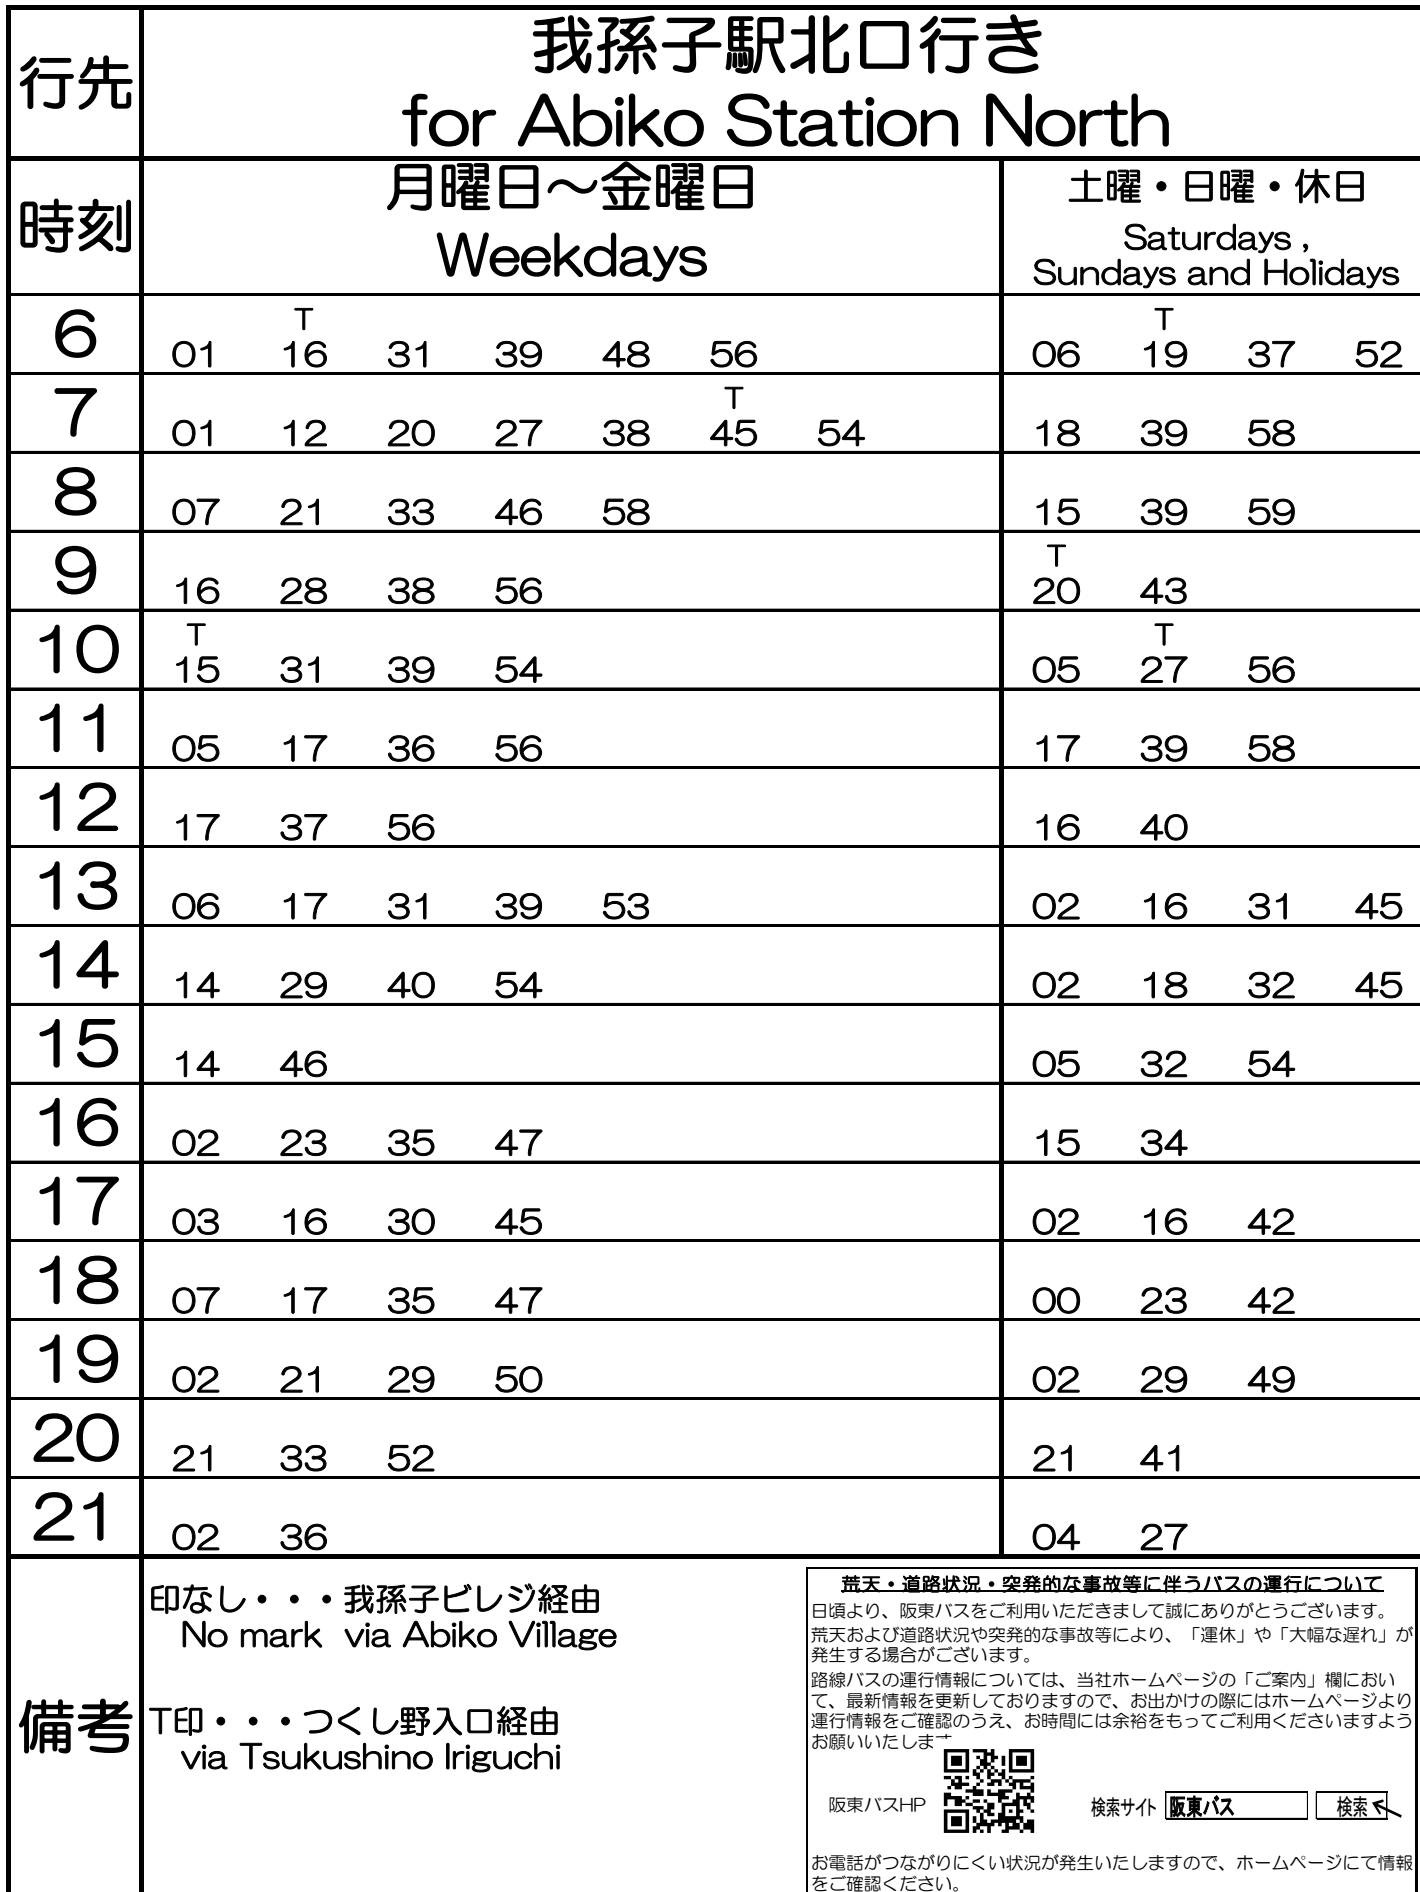 行先
我孫子駅北口行き
for Abiko Station North
時刻
月曜日～金曜日
Weekdays
土曜・日曜・休日
Saturdays ,
Sundays and Holidays
T T
6 01 16 31 39 48 56 06 19 37 52
T
7 01 12 20 27 38 45 54 18 39 58
8 07 21 33 46 58 15 39 59
T
9 16 28 38 56 20 43
T T
10 15 31 39 54 05 27 56
11 05 17 36 56 17 39 58
12 17 37 56 16 40
13 06 17 31 39 53 02 16 31 45
14 14 29 40 54 02 18 32 45
15 14 46 05 32 54
16 02 23 35 47 15 34
17 03 16 30 45 02 16 42
18 07 17 35 47 00 23 42
19 02 21 29 50 02 29 49
20 21 33 52 21 41
21 02 36 04 27
備考
印なし・・・我孫子ビレジ経由
No mark via Abiko Village
T印・・・つくし野入口経由
via Tsukushino Iriguchi
荒天・道路状況・突発的な事故等に伴うバスの運行について
日頃より、阪東バスをご利用いただきまして誠にありがとうございます。
荒天および道路状況や突発的な事故等により、「運休」や「大幅な遅れ」が
発生する場合がございます。
路線バスの運行情報については、当社ホームページの「ご案内」欄におい
て、最新情報を更新しておりますので、お出かけの際にはホームページより
運行情報をご確認のうえ、お時間には余裕をもってご利用くださいますよう
お願いいたします
阪東バスHP 検索サイト 阪東バス 検索
お電話がつながりにくい状況が発生いたしますので、ホームページにて情報
をご確認ください。